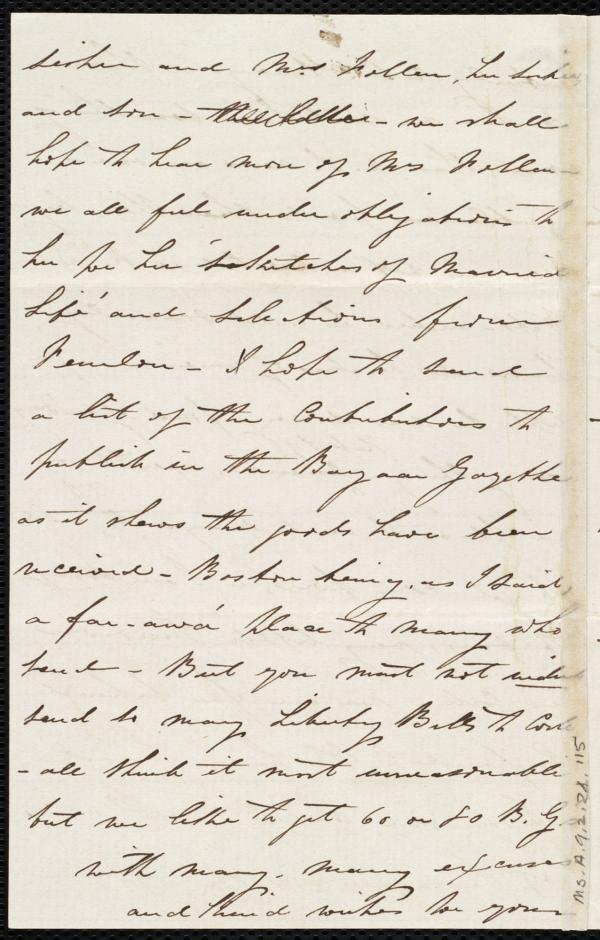 sister and Mrs Follen, her sister
and son - we shall
hope to hear more of Mrs Follen -
we all feel under obligations to
her for her 'sketches of Married
Life' and selections from
Fenelon - I hope to send
a list of the Contributors to
publish in the Bazaar Gazette
as it shews the goods have been
received - Boston being, as I said,
a far-awa' place to many who
send - But you must not indeed
send so many Liberty Bells to Cork
- all think it most unreasonable
but we like to get 60 or 80 B. G
with many, many excuses
and kind wishes for your
Ms. A. 9. 2. 24. 115